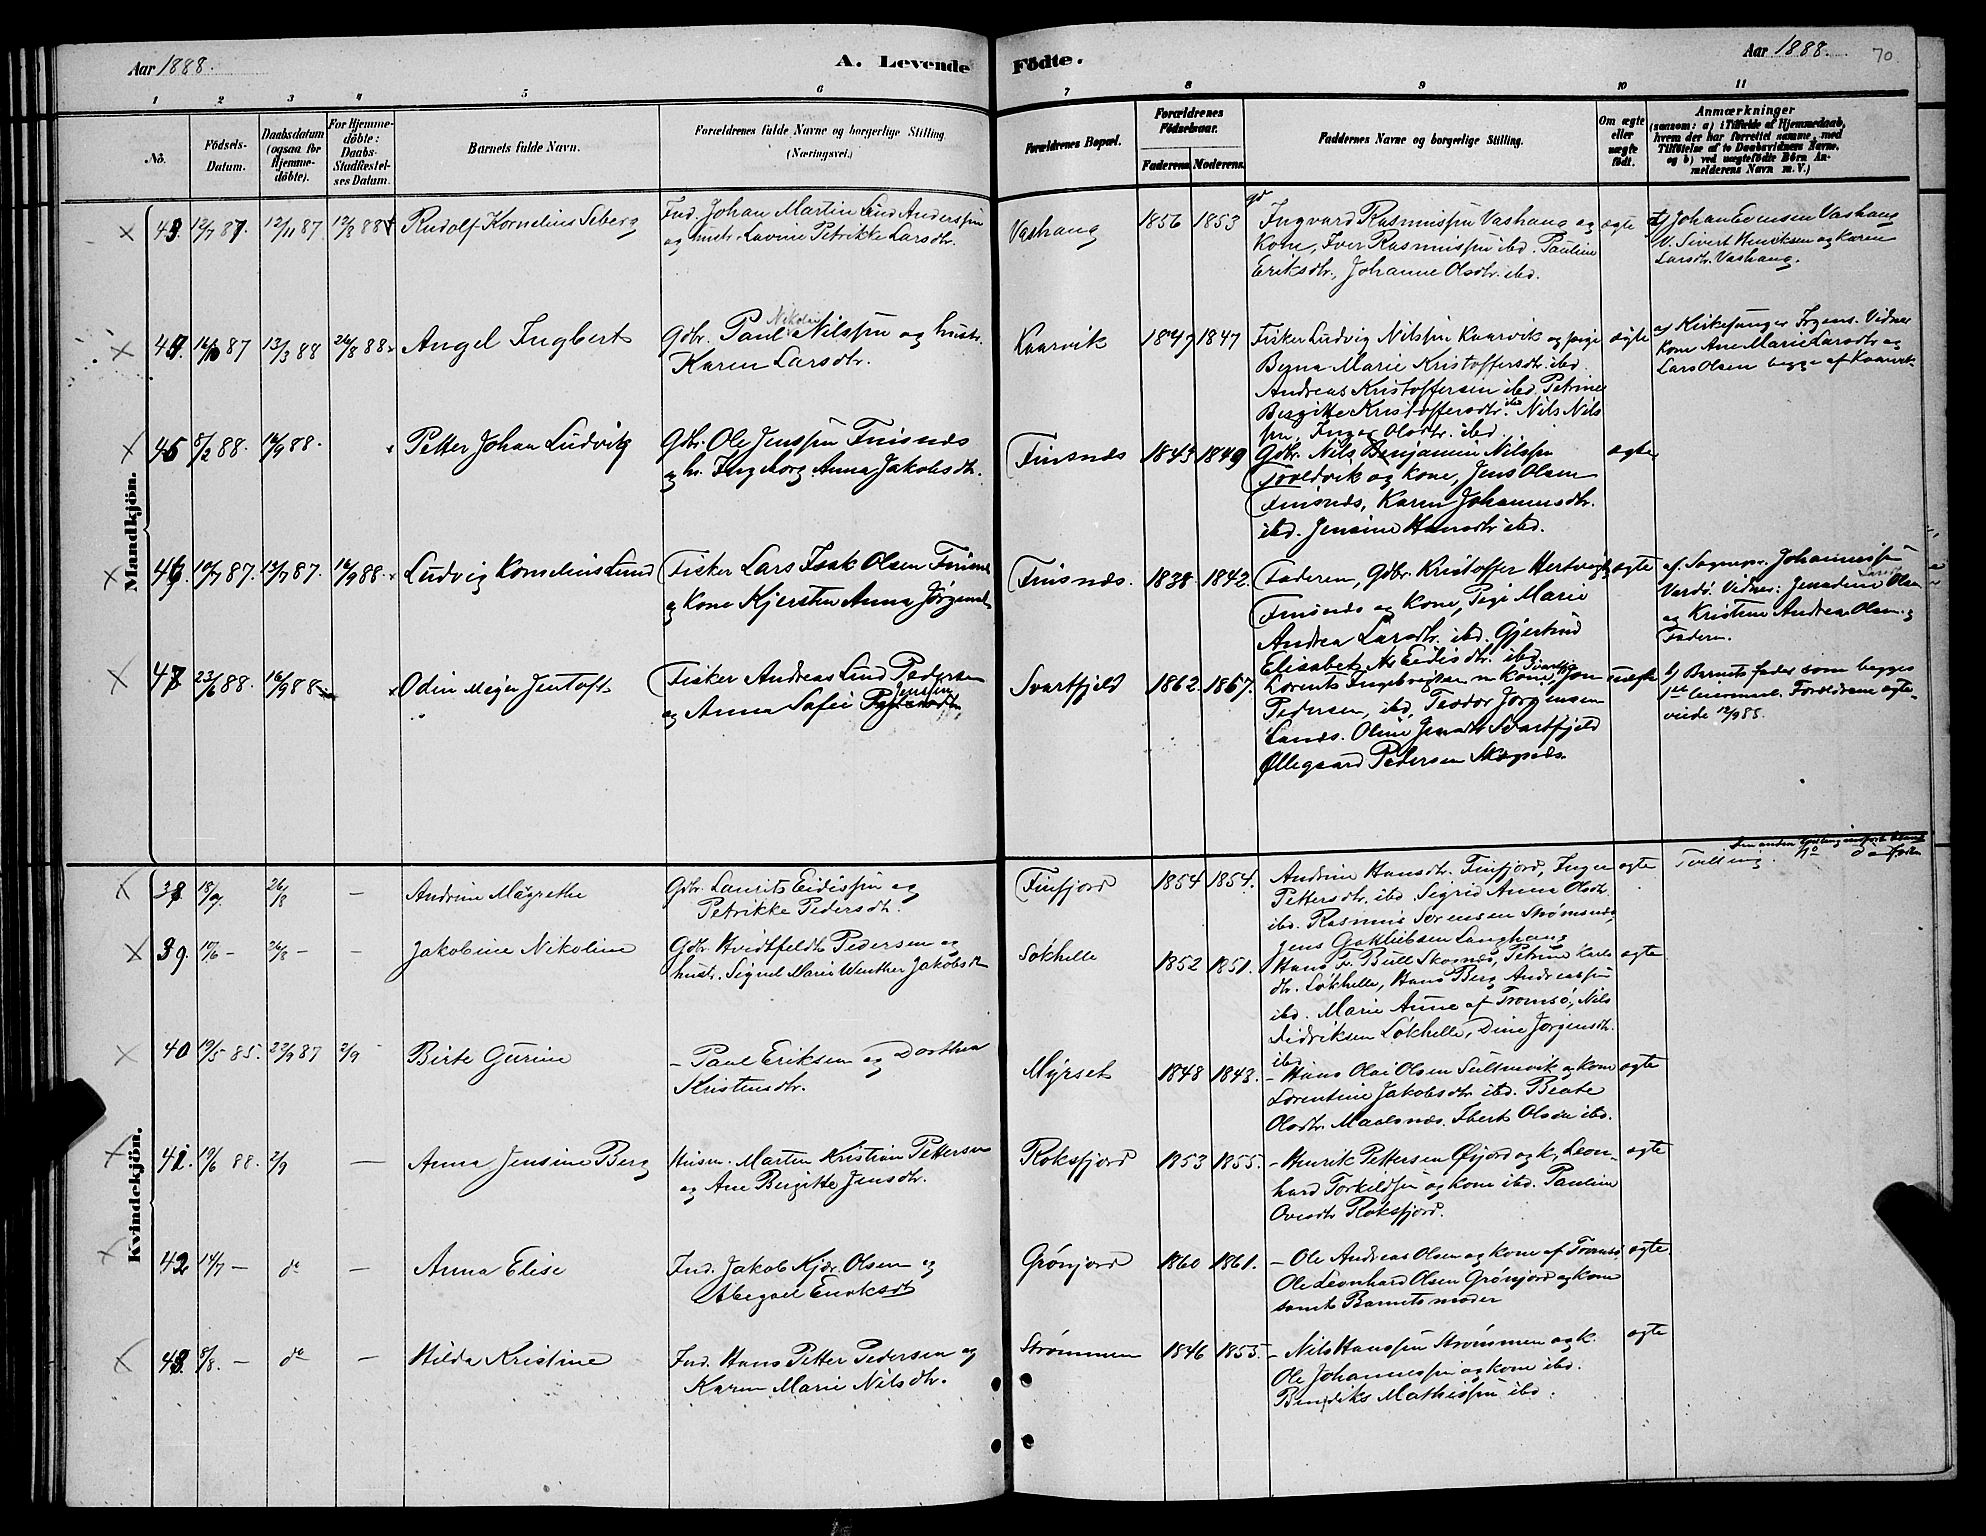 Aar 1888.
A. Levende
Födte.
Aar 1888.
70
1 2 3 4 5 6 7 8 9 10 11
No.
Födsels-
Datum.
Daabsdatum
(ogsaa for
Hjemme-
döbte).
For Hjemme-
döbte:
Daabs-
Stadfæstel-
ses Datum.
Barnets fulde Navn.
Forældrenes fulde Navne og borgerlige Stilling.
(Næringsvei.)
Forældrenes Bopæl.
Forældrenes
Födselsaar.
Faderens.
Moderens.
Faddernes Navne og borgerlige Stilling.
Om ægte
eller
uægte
födt.
Anmærkninger
(saasom: a) i Tilfælde af Hjemmedaab,
hvem der har forrettet samme, med
Tilföielse af to Daabsvidners Navne,
og b) ved uægtefödte Börn An-
melderens Navn m. V.)
Mandkjön.
43 12/7 87. 12/11 87 19/8 88 Rudolf Kornelius Seberg
Ind. Johan Martin Lind Anderssen
og hustr. Lavine Petrikke Larsdtr.
Vashaug 1856 1853
Ingvard Rasmussen Vashaug og
Kone, Iver Rasmussen ibd. Pauline
Eriksdtr., Johanne Olsdtr. ibd.
ægte
Johan Evensen Vashaug
V. Sivert Henriksen og Karen
Larsdtr. Vashaug.
16/10 87 13/3 88 26/8 88 Angel Ingbert
Gbr. Paul Nikolai Nilssen og hustr.
Karen Larsdtr.
Kaarvik 1847 1847
Fisker Ludvig Nilssen Kaarvik og pige
Berna Marie Kristoffersdtr. ibd.
Andreas Kristoffersen ibd. Petrine
Bergitte Kristoffersdtr. ibd Nils Nils
sen, Inger Olsdtr. ibd.
ægte
a) Kirkesanger Irgens. Vidner
Kone Ane Marie Larsdtr og
Lars Olsen begge af Kaarvik.
45 8/2 88. 16/9 88. Petter Johan Ludvig
Gbr. Ole Jenssen Finsnæs
og h. Ingeborg Anna Jakobsdtr.
Finsnæs 1843 1849
Gbr. Nils Benjamin Nilssen
Tovldvik og Kone, Jens Olsen
Finsnæs, Karen Johannesdtr.
ibd. Jensine Hansdtr ibd.
ægte
46 10/7 87. 15/7 87. 16/9 88. Ludvig Kornelius Lund
Fisker Lars Isak Olsen Finsnæs
og Kone Kjersten Anna Jörgensdtr
Finsnæs. 1838 1842.
Faderen, Gbr. Kristoffer Hertvig
Finsnæs og Kone, Pige Marie
Andrea Larsdtr. ibd. Gjertrud
Elisabet Ar Eidisdtr. ibd
ægte
af. Sognepr. Johannessen
Vardö. Vidner: Jensdine Olsen
og Kristine Andrea Olsen og
Faderen.
47 23/6 88. 16/9 88 Odin Mejer Jentoft
Fisker Andreas Lind Pedersen
og Anna Sofie Jensen
Svartfjeld 1862. 1867.
Lorents Ingebrigtsen m kone, Jon
Pedersen, ibd, Teodor Jörgensen
Lands. Oline Jensdtr Svartfjeld
Øllegaard Pedersen Skognæs.
uægte
b) Barnets fader som begges
1ste Leiermaal. Forældrene ægte-
viede 12/9 88.
Kvindekjön.
38 18/7. 26/8 — Andrine Magrethe
Gbr. Laurits Eidissen og
Petrikke Pedersdtr.
Finfjord 1854 1854.
Andrine Hansdtr. Finfjord, Inger
Pettersdtr. ibd Sigrid Anna Olsdtr.
ibd. Rasmus Sörensen Strömsnæs
Jens Gotliebsen Langhaug
ægte
Tvilling.
39. 10/6 — 26/8 — — Jakobine Nikoline
Gbr. Hvidtfeldt Pedersen og
hust. Signel Marie Wenther Jakobsdtr
Løkhelle 1852 1851.
Hans F. Bull Skognæs, Petrine Karls
dtr. Løkhelle, Hans Berg Andreassen
ibd. Marie Anne af Tromsø, Nils
Didriksen Løkhelle, Dine Jørgensdtr.
ibd
ægte
40 19/5 85. 22/9 87 2/9 Birte Gurine
— Paul Eriksen og Dorthea
Kristensdtr.
Myrset 1848 1843.
— Hans Olai Olsen Sultenvik og kone
Lorentine Jakobsdtr ibd. Beate
Olsdtr. Maalsnæs. Ebert Olsen ibd.
ægte
41. 19/6 88. 2/9 — Anna Jensine Berg
Husm. Martin Kristian Pettersen
og Ane Bergitte Jensdtr.
Roksfjord 1853 1855.
— Henrik Pettersen Øijord og k. Leon-
hard Torkildsen og kone ibd. Pauline
Ovesdtr Roksfjord.
ægte
42 14/7 — do — Anna Elise
Ind. Jakob Kjær Olsen og
Abegael Enoksdtr
Grønjord 1860 1861.
— Ole Andreas Olsen og kone af Tromsø
Ole Leonhard Olsen Grønjord og kone
samt Barnets moder
ægte
43. 8/8. — do — Hilda Kristine
Ind. Hans Petter Pedersen og
Karen Marie Nilsdtr.
Strømmen 1846 1855
— Nils Hanssen Strømmen og k.
Ole Johannessen og kone ibd.
Bendiks Mathissen ibd.
ægte